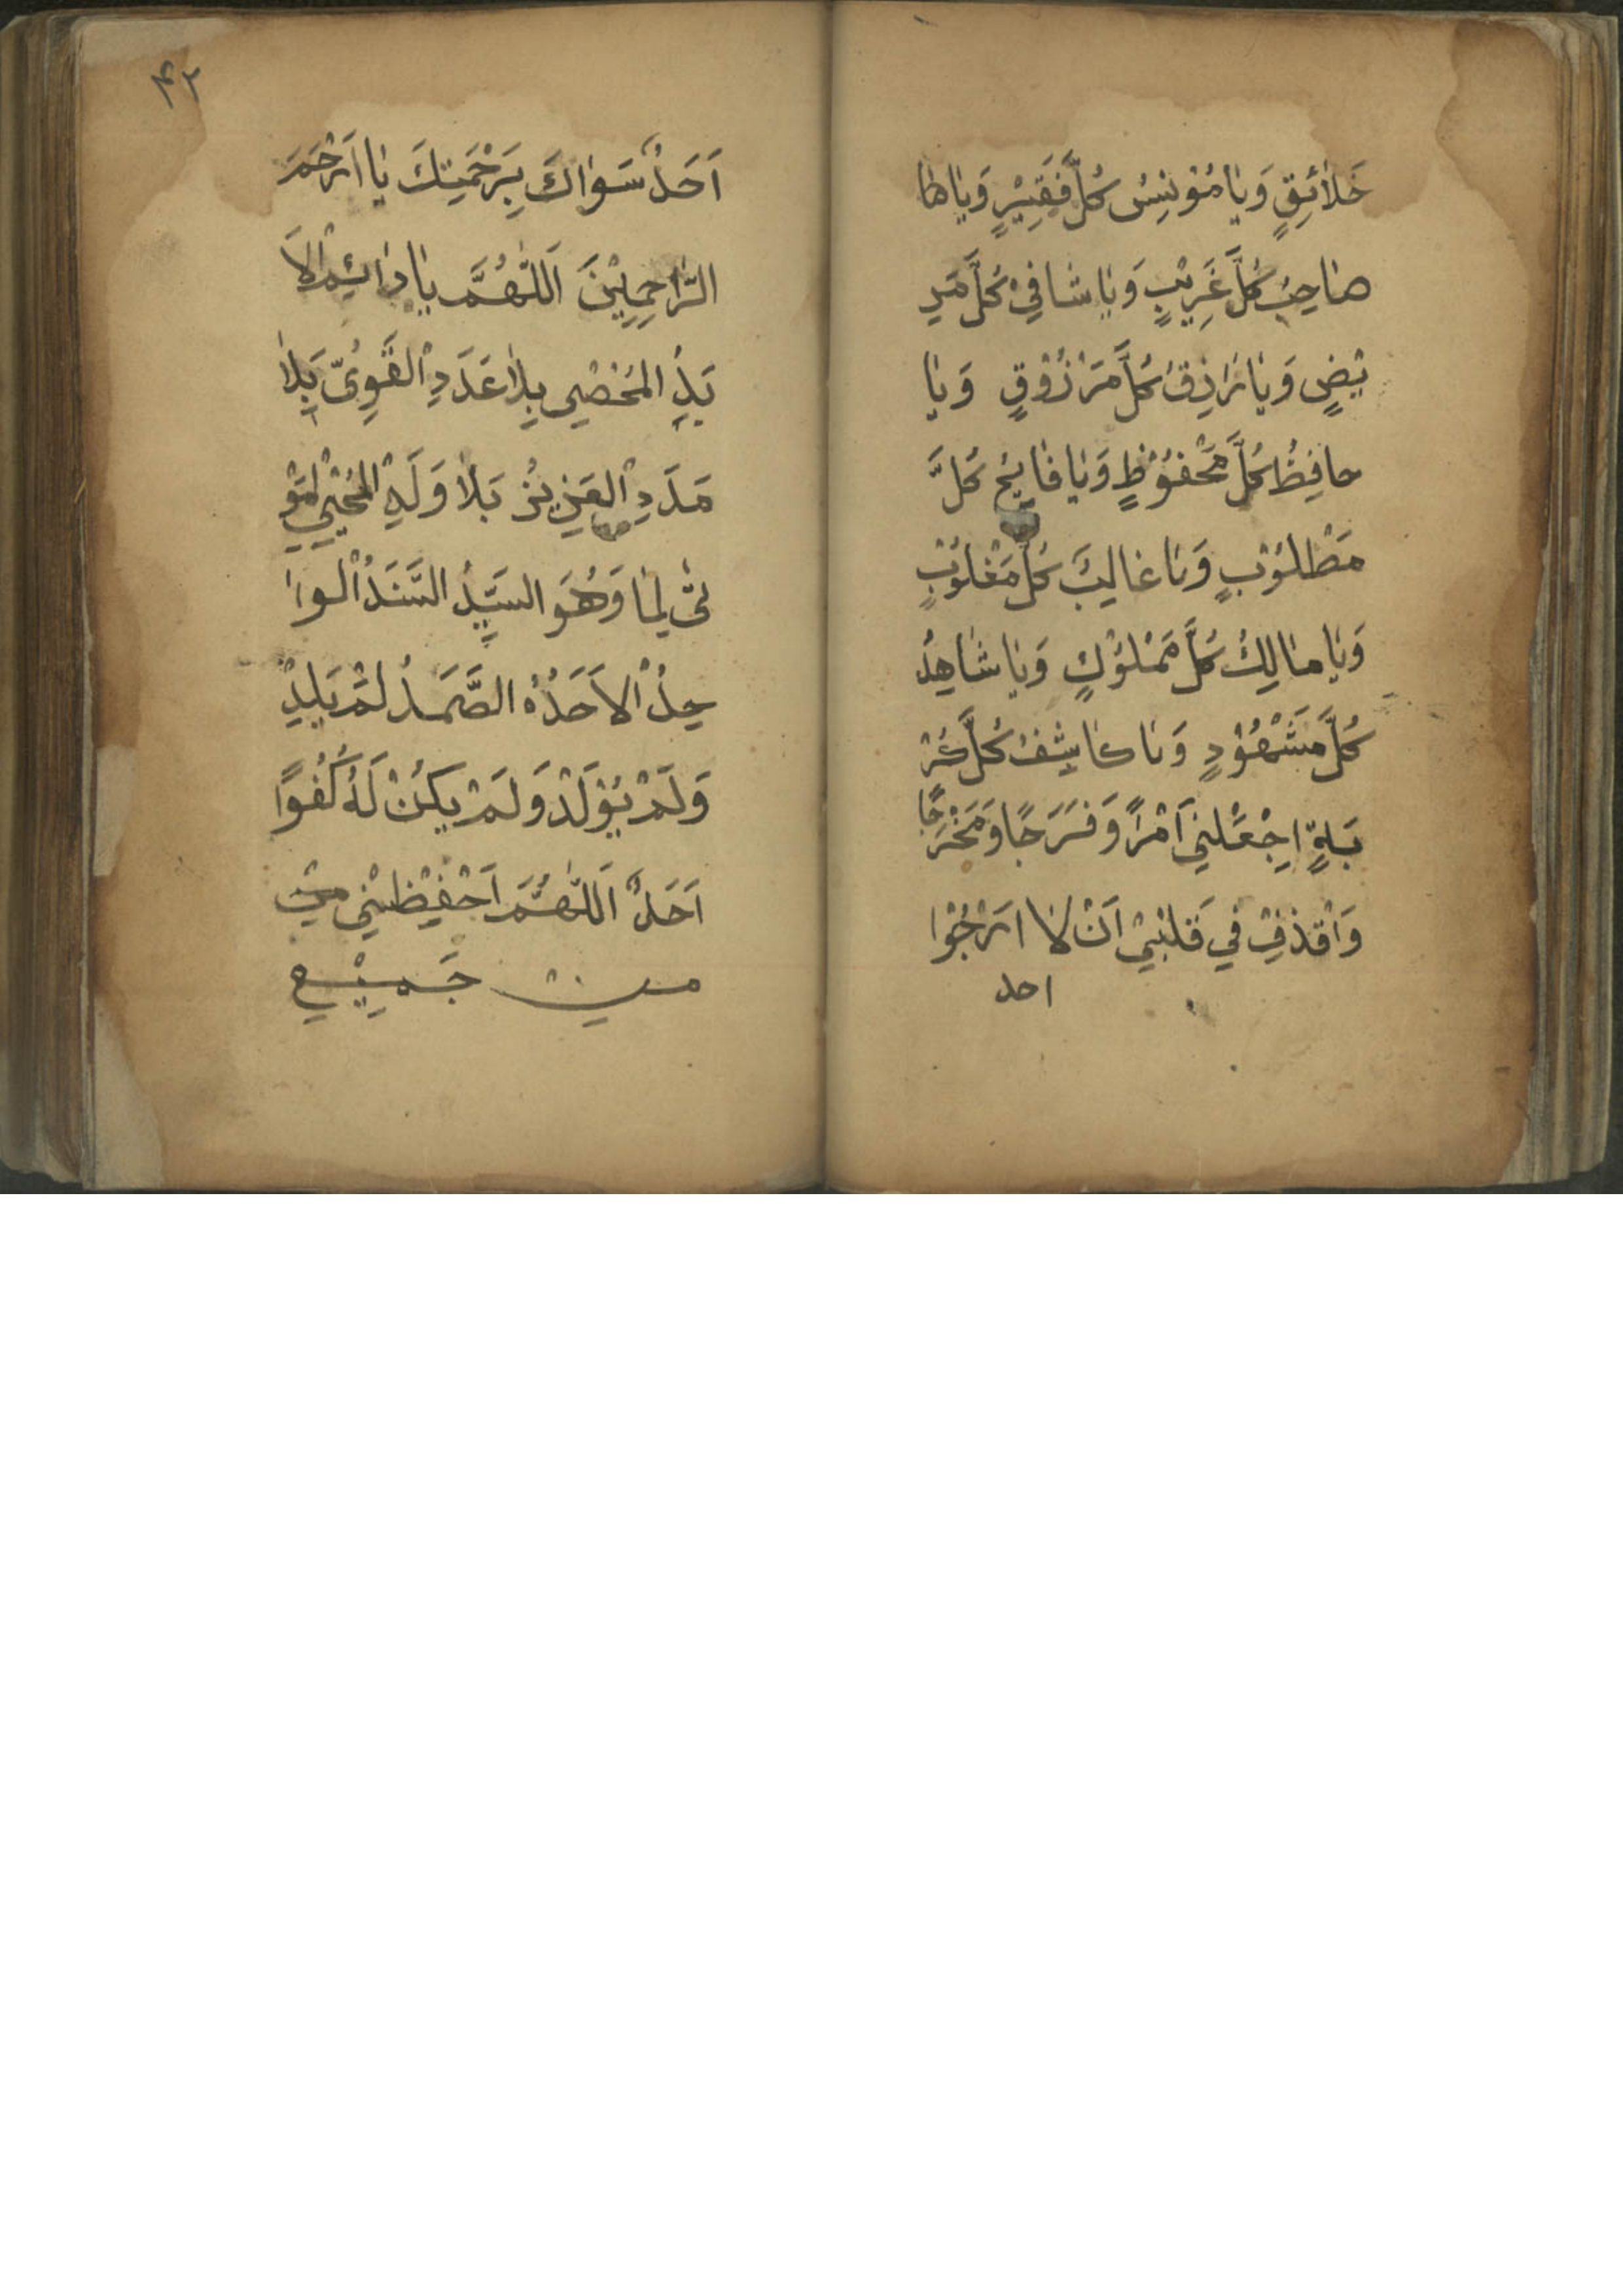 خَلَائِقٍ وَيَا مُوْنِسُ كُلَّ فَقِيْرٍ وَيَا طا
صَاحِبُ كُلَّ غَرِيْبٍ وَيَا شَافِيْ كُلَّ مَرِ
يْضٍ وَيَا رَازِقُ كُلَّ مَرْزُوْقٍ وَيَا
حافِظُ كُلَّ مَحْفُوْظٍ وَيَا فَايِحُ كُلَّ
مَطْلُوْبٍ وَيَا غَالِبَ كُلَّ مَغْلُوْبٍ
وَيَا مَالِكُ كُلَّ مَمْلُوْكٍ وَيَا شَاهِدُ
كُلَّ مَشْهُوْدٍ وَيَا كَاشِفُ كُلَّ كُرْ
بَةٍ اِجْعَلْنِيْ اَمْرًا وَفَرَجًا وَمَخْرَجًا
وَاقْذِفْ فِيْ قَلْبِيْ اَنْ لَا اَرْجُوْا
احد
۴۲
اَحَدٌ سَوَاكَ بِرَحْمَتِكَ يَا اَرْحَمَ
الرَّاحِمِيْنَ اَللّٰهُمَّ يَا دَائِمُ الْاَ
بَدِ المُحْصِي بِلَا عَدَدِ الْقَوِيُّ بِلَا
مَدَدِ الْعَزِيْزُ بَلَا وَلَدِ الْمُحْيِي الْمَوْ
تٰى لِمَا وَهُوَ السَيِّدُ السَّنَدُ الْوَا
حِدُ الْاَحَدُ الصَّمَدُ لَمْ يَلِدْ
وَلَمْ يُوْلَدْ وَلَمْ يَكُنْ لَهُ كُفُوًا
اَحَدٌ اَللّٰهُمَّ اَحْفِظْنِيْ مِنْ
مِنْ جَمِيْعِ